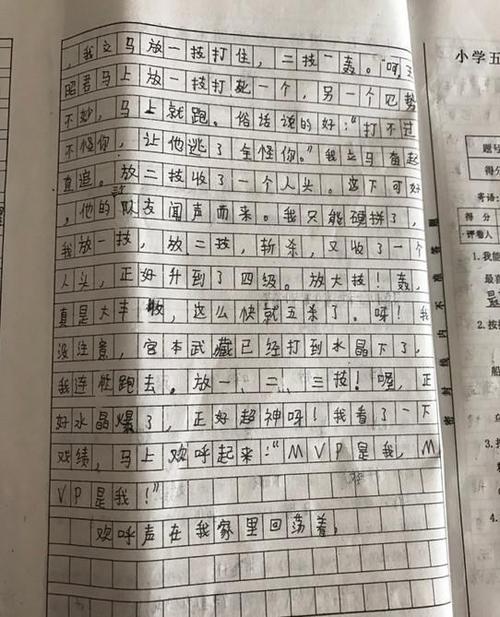 ，我立马放一技打住，二技一轰。呵，王
昭君马上放一技打死一个，另一个见势
不妙，马上就跑。俗话说的好：“打不过
不怪你，让他逃了全怪你。”我立马奋起
直追。放二技收了一个人头。这下可好
，他的队友闻声而来。我只能硬拼了，
我放一技，放二技，斩杀，又收了一个
人头，正好升到了四级。放大技！轰，
真是大丰收，这么快就五杀了。呀！我
没注意，宫本武藏已经打到水晶下了，
我连忙跑去。放一二！三技！喔，正
好水晶爆了，正好超神呀！我看了一下
战绩，马上欢呼起来：“MVP是我，M
VP是我！”
欢呼声在我家里回荡着。
小学五
题号
得分
得分
评卷人
1.我能
最喜
2.按
船
3.
密封线内不准答题